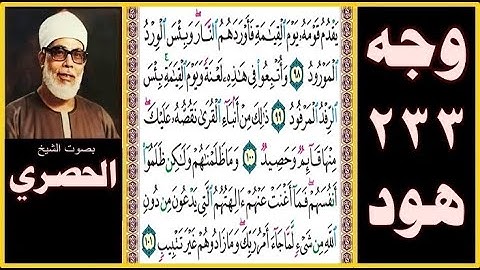 وجه
٢٣٣
هود
يَقْدُمُ قَوْمَهُۥ يَوْمَ ٱلْقِيَٰمَةِ فَأَوْرَدَهُمُ ٱلنَّارَۖ وَبِئْسَ ٱلْوِرْدُ
ٱلْمَوْرُودُ ٩٨ وَأُتْبِعُوا۟ فِى هَٰذِهِۦ لَعْنَةً وَيَوْمَ ٱلْقِيَٰمَةِۚ بِئْسَ
ٱلرِّفْدُ ٱلْمَرْفُودُ ٩٩ ذَٰلِكَ مِنْ أَنۢبَآءِ ٱلْقُرَىٰ نَقُصُّهُۥ عَلَيْكَۖ
مِنْهَا قَآئِمٌ وَحَصِيدٌ ١٠٠ وَمَا ظَلَمْنَٰهُمْ وَلَٰكِن ظَلَمُوٓا۟
أَنفُسَهُمْۖ فَمَآ أَغْنَتْ عَنْهُمْ ءَالِهَتُهُمُ ٱلَّتِى يَدْعُونَ مِن دُونِ
ٱللَّهِ مِن شَىْءٍ لَّمَّا جَآءَ أَمْرُ رَبِّكَۖ وَمَا زَادُوهُمْ غَيْرَ تَتْبِيبٍ ١٠١
بصوت الشيخ
الحصري